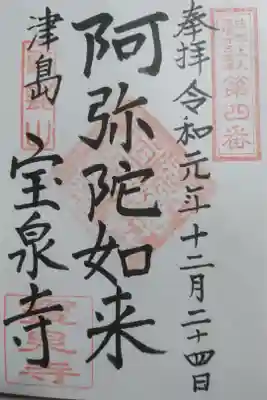 第四番
奉拝 令和元年十二月二十四日
阿弥陀如来
津島 宝泉寺
宝泉寺